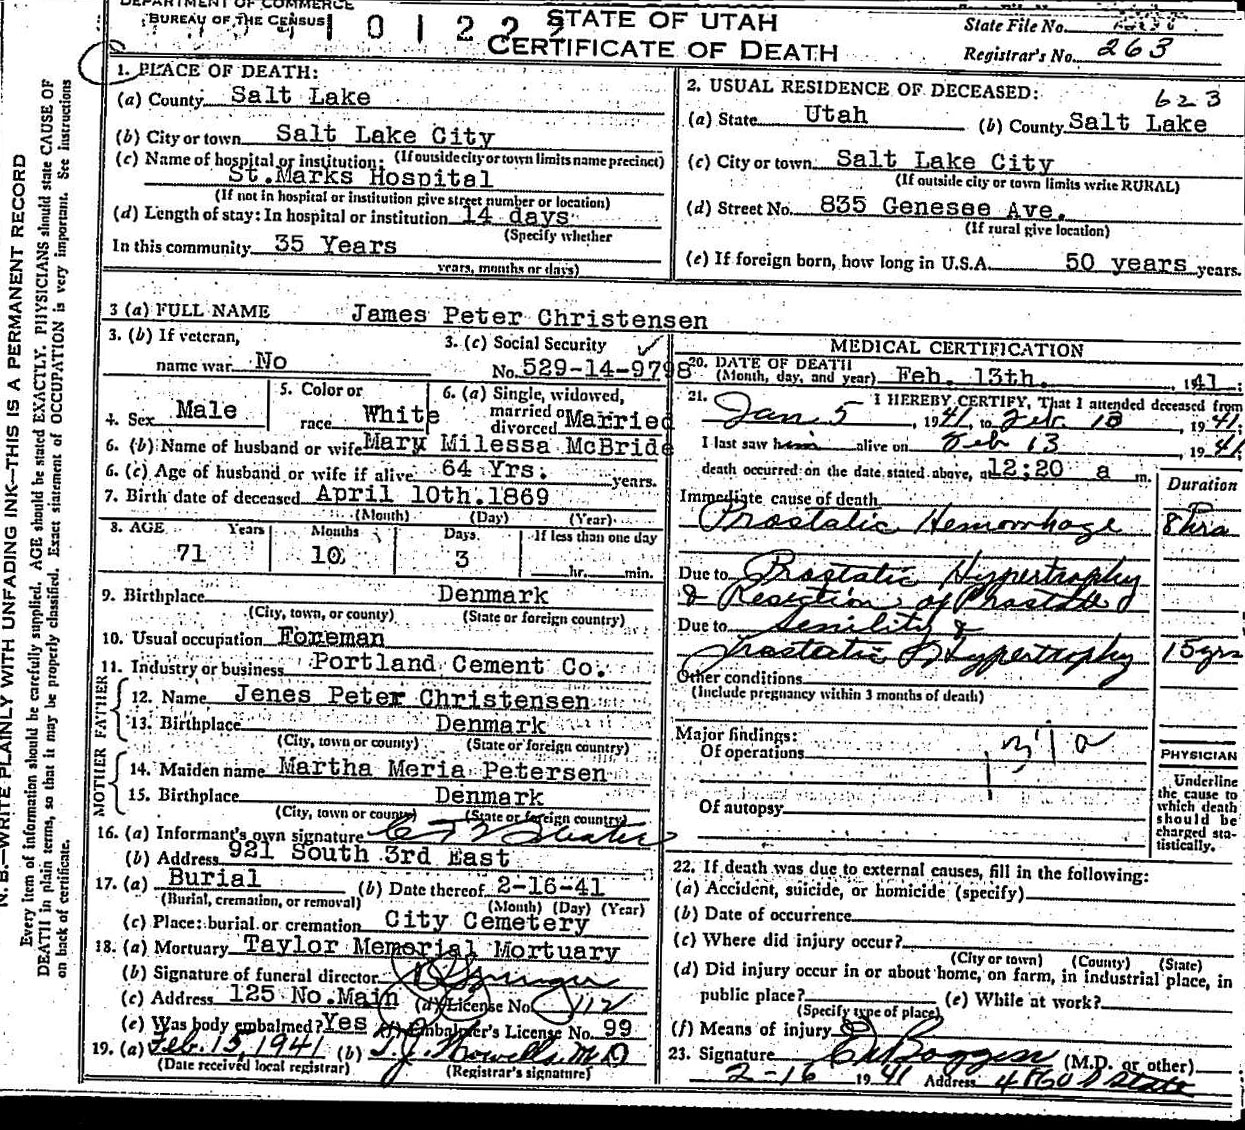 DEPARTMENT OF COMMERCE
BUREAU OF THE CENSUS
STATE OF UTAH
CERTIFICATE OF DEATH
State File No.
Registrar's No. 263
1. PLACE OF DEATH:
(a) County Salt Lake
(b) City or town Salt Lake City
(c) Name of hospital or institution: (If outside city or town limits name precinct)
St.Marks Hospital
(If not in hospital or institution give street number or location)
(d) Length of stay: In hospital or institution 14 days
(Specify whether
In this community 35 Years
years, months or days)
2. USUAL RESIDENCE OF DECEASED:
623
(a) State Utah (b) County Salt Lake
(c) City or town Salt Lake City
(If outside city or town limits write RURAL)
(d) Street No. 835 Genesee Ave.
(If rural give location)
(e) If foreign born, how long in U.S.A. 50 years years.
3 (a) FULL NAME James Peter Christensen
3. (b) If veteran,
name war No
3. (c) Social Security
No. 529-14-9798
4. Sex Male
5. Color or
race White
6. (a) Single, widowed,
married or
divorced Married
6. (b) Name of husband or wife Mary Milessa McBride
6. (c) Age of husband or wife if alive 64 Yrs. years.
7. Birth date of deceased April 10th.1869
(Month) (Day) (Year)
8. AGE Years Months Days If less than one day
71 10 3 hr. min.
9. Birthplace Denmark
(City, town, or county) (State or foreign country)
10. Usual occupation Foreman
11. Industry or business Portland Cement Co.
FATHER
12. Name Jenes Peter Christensen
13. Birthplace Denmark
(City, town or county) (State or foreign country)
MOTHER
14. Maiden name Martha Meria Petersen
15. Birthplace Denmark
(City, town or county) (State or foreign country)
16. (a) Informant's own signature
(b) Address 921 South 3rd East
17. (a) Burial (b) Date thereof 2-16-41
(Burial, cremation, or removal) (Month) (Day) (Year)
(c) Place: burial or cremation City Cemetery
18. (a) Mortuary Taylor Memorial Mortuary
(b) Signature of funeral director
(c) Address 125 No.Main (d) License No. 112
(e) Was body embalmed? Yes (f) Embalmer's License No. 99
19. (a) Feb. 15, 1941 (b) T.J. Howells M.D
(Date received local registrar) (Registrar's signature)
MEDICAL CERTIFICATION
20. DATE OF DEATH
(Month, day, and year) Feb. 13th. , 1941
21. I HEREBY CERTIFY, That I attended deceased from
Jan 5 , 1941, to Feb. 13 , 1941,
I last saw him alive on Feb 13 , 1941,
death occurred on the date stated above, at 12:20 a m.
Duration
Immediate cause of death
Prostatic Hemorrhage 8 hrs
Due to Prostatic Hypertrophy
& Resection of Prostate
Due to Senility &
Prostatic Hypertrophy 15 yrs
Other conditions
(Include pregnancy within 3 months of death)
Major findings:
Of operations
137a
Of autopsy
PHYSICIAN
Underline
the cause to
which death
should be
charged sta-
tistically.
22. If death was due to external causes, fill in the following:
(a) Accident, suicide, or homicide (specify)
(b) Date of occurrence
(c) Where did injury occur?
(City or town) (County) (State)
(d) Did injury occur in or about home, on farm, in industrial place, in
public place? (e) While at work?
(Specify type of place)
(f) Means of injury
23. Signature (M.D. or other)
2-16 1941 Address 4860 S State
N. B.—WRITE PLAINLY WITH UNFADING INK—THIS IS A PERMANENT RECORD
Every item of information should be carefully supplied. AGE should be stated EXACTLY. PHYSICIANS should state CAUSE OF
DEATH in plain terms, so that it may be properly classified. Exact statement of OCCUPATION is very important. See instructions
on back of certificate.